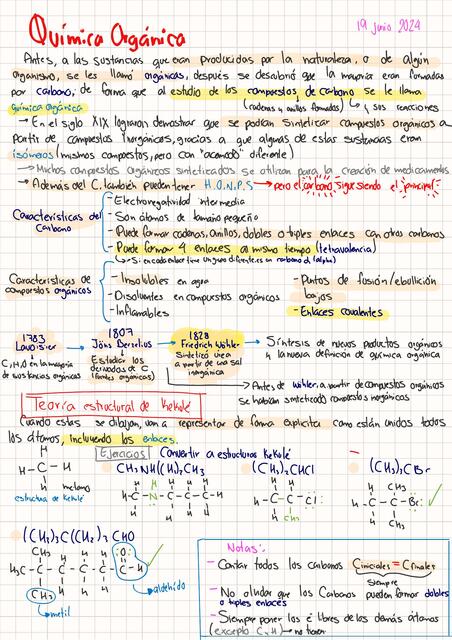 Química Orgánica
19 junio 2024
Antes, a las sustancias que eran producidas por la naturaleza, o de algún
organismo, se les llamó orgánicas, después se descubrió que la mayoría eran formadas
por carbono, de forma que al estudio de los compuestos de carbono se le llama
química orgánica
(cadenas y anillos formados)
y sus reacciones
→ En el siglo XIX lograron demostrar que se podían sintetizar compuestos orgánicos a
partir de compuestos inorgánicos, gracias a que algunas de estas sustancias eran
isómeros (mismos compuestos, pero con "acomodo" diferente)
→ Muchos compuestos orgánicos sintetizados se utilizan para la creación de medicamentos
→ Además del C, también pueden tener H,O,N,P,S → pero el carbono sigue siendo el principal
Características del
Carbono
- Electronegatividad intermedia
- Son átomos de tamaño pequeño
- Puede formar cadenas, anillos, dobles o triples enlaces con otros carbonos
- Puede formar 4 enlaces al mismo tiempo (tetravalencia)
Características de
compuestos orgánicos
- Insolubles en agua
- Disolventes en compuestos orgánicos
- Inflamables
- Puntos de fusión/ebullición
bajos
- Enlaces covalentes
1783
Lavoisier
C,H,O en la mayoría
de sustancias orgánicas
1807
Jöns Berzelius
Estudiar los
derivados de C
(fuentes orgánicas)
1828
Friedrich Wöhler
Sintetizó urea
a partir de una sal
inorgánica
Síntesis de nuevos productos orgánicos
y la nueva definición de química orgánica
Antes de Wöhler, a partir de compuestos orgánicos
se habían sintetizado compuestos inorgánicos
Teoría estructural de Kekulé
Cuando estas se dibujan, van a representar de forma explícita como están unidos todos
los átomos, incluyendo los enlaces.
Ejercicios
Convertir a estructuras Kekulé
metano
estructura de Kekulé
CH₃NH(CH₂)₃CH₃
(CH₃)₂CHCl
(CH₃)₃CBr
(CH₃)₃C(CH₂)₃CHO
aldehído
metil
Notas:
- Contar todos los carbonos Ciniciales = Cfinales
siempre
- No olvidar que los Carbonos pueden formar dobles
o triples enlaces
- Siempre poner los e⁻ libres de los demás átomos
(excepto C y H) → no tienen